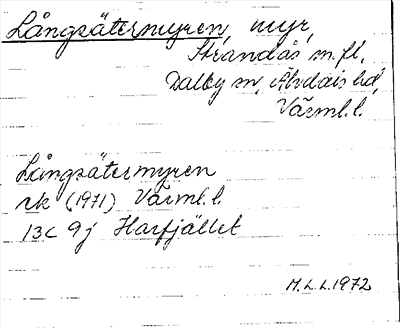 Långsätermyren, myr,
Strandås m.fl.
Dalby sn, Älvdals hd,
Värml. l.
Långsätermyren
rk (1971) Värml. l.
13C 9j Harfjället
M.L.L. 1972